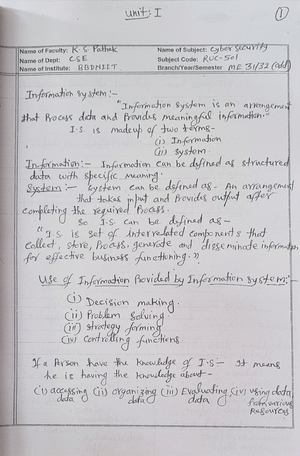 Unit: I
1
Name of Faculty: K. S. Pathak
Name of Subject: Cyber Security
Name of Dept: CSE
Subject Code: RUC-501
Name of Institute: BBDNIIT
Branch/Year/Semester ME 31/32 (odd)
Information System:-
"Information System is an arrangement
that Process data and Provides meaningful information."
I.S. is made up of two terms-
(i) Information
(ii) System
Information:- Information can be defined as structured
data with specific meaning.
System:- System can be defined as- An arrangement
that takes input and Provides output after
completing the required Process.
So I.S can be defined as-
"I.S is set of Interrelated components that
collect, store, Process, generate and disseminate information
for effective business functioning."
Use of Information Provided by Information System:-
(i) Decision making.
(ii) Problem Solving.
(iii) Strategy forming
(iv) Controlling functions
If a Person have the knowledge of I.S- It means
he is having the knowledge about-
(i) accessing (ii) organizing (iii) Evaluating (iv) using data
data data data from various
resources